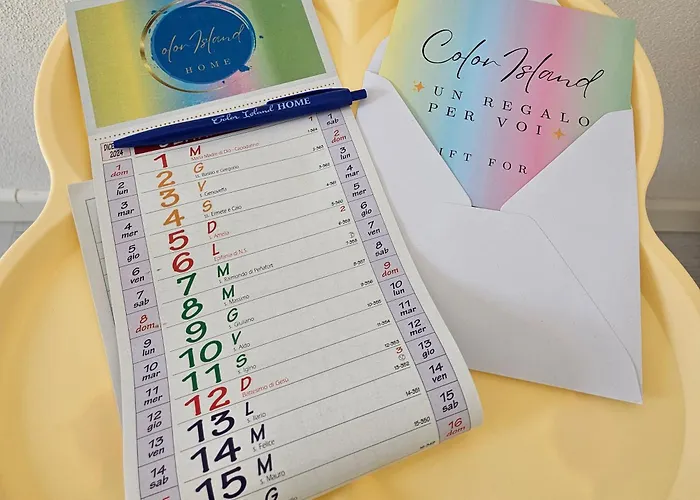 Color Island
HOME
Color Island HOME
DIC
2024
1 dom
2 lun
3 mar
4 mer
5 gio
6 ven
7 sab
8 dom
9 lun
10 mar
11 mer
12 gio
13 ven
14 sab
15 dom
16 lun
1 M Maria Madre di Dio - Capodanno 1-364
2 G ss. Basilio e Gregorio
3 V s. Genoveffa 3-362
4 S ss. Ermete e Caio 4-361
5 D s. Amelia 5-360
6 L Epifania di N.S. 6-359
2
7 M s. Raimondo di Peñafort 7-358
8 M s. Massimo 8-357
9 G s. Giuliano 9-356
10 V s. Aldo 10-355
11 S s. Igino 11-354
12 D Battesimo di Gesù 12-353
3
13 L s. Ilario 13-352
14 M s. Felice 14-351
15 M s. Mauro 15-350
G
1 sab
2 dom
3 lun
4 mar
5 mer
6 gio
7 ven
8 sab
9 dom
10 lun
11 mar
12 mer
13 gio
14 ven
15 sab
16 dom
Color Island
UN REGALO
PER VOI
IFT FOR